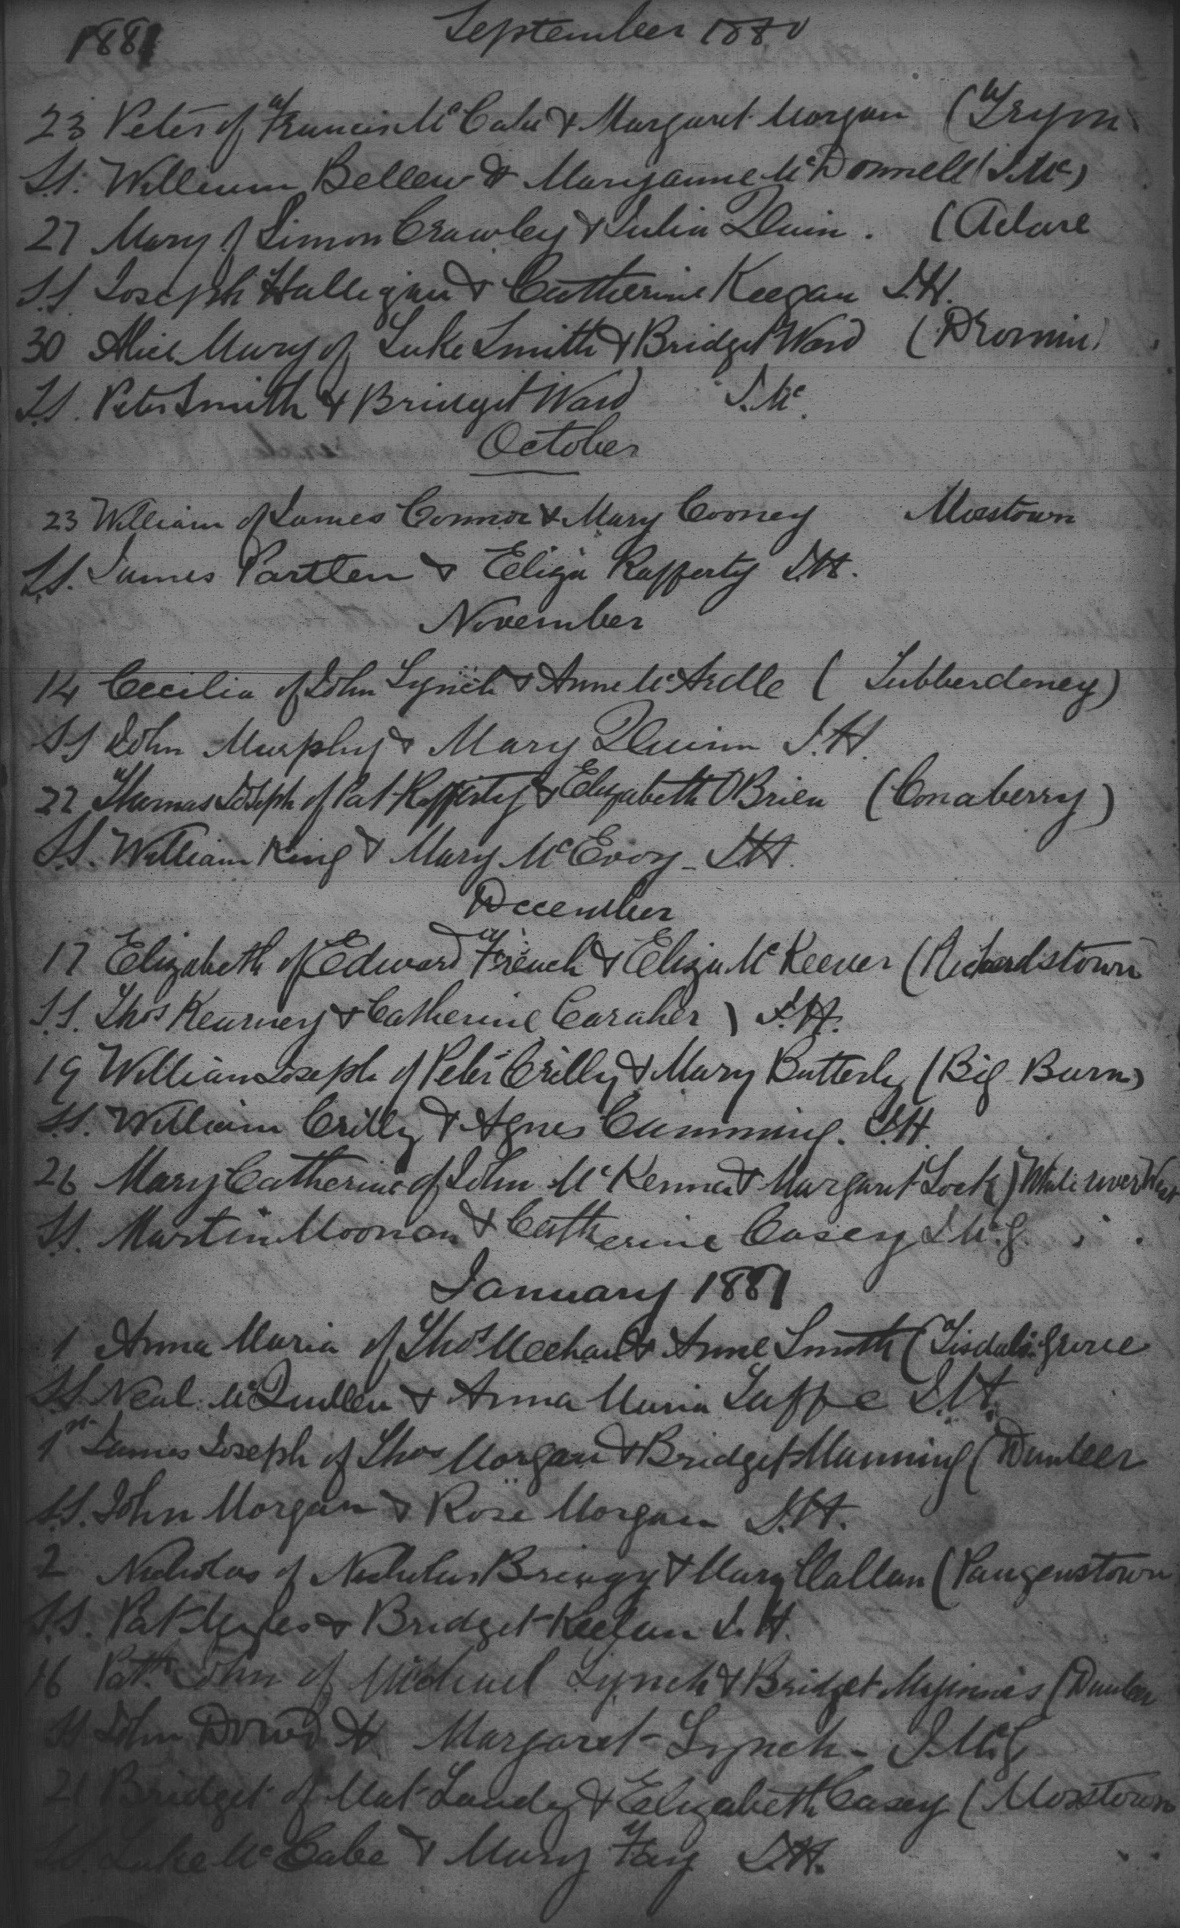 1881 September 1880
23 Peter of Francis McCabe & Margaret Morgan (Drym
SS. William Bellew & Maryanne McDonnell (J.Mc)
27 Mary of Simon Crawley & Julia Quin. (Adare
S.S. Joseph Halligan & Catherine Keegan J.H.
30 Alice Mary of Luke Smith & Bridget Ward (Dromin)
S.S. Peter Smith & Bridget Ward J.Mc.
October
23 William of James Connor & Mary Cooney Mosstown
S.S. James Partlen & Eliza Rafferty J.H.
November
14 Cecilia of John Lynch & Anne McArdle (Tubberdoney)
SS John Murphy & Mary Quinn J.H.
22 Thomas Joseph of Pat Rafferty & Elizabeth O'Brien (Conaberry)
S.S. William King & Mary McEvoy - J.H.
December
17 Elizabeth of Edward French & Eliza McKeever (Richardstown
S.S. Thos Kearney & Catherine Caraher) J.H.
19 William Joseph of Peter Crilly & Mary Butterly (Big Burn)
S.S. William Crilly & Agnes Cumming. J.H.
26 Mary Catherine of John McKenna & Margaret Lock) White river West
SS. Martin Moonan & Catherine Casey J.Mc.G.
January 1881
1 Anna Maria of Thos Meehan & Anne Smith (Tisdals Grove
SS Neal McQuillen & Anna Maria Taffe J.H.
1st James Joseph of Thos Morgan & Bridget Manning (Dunleer
S.S. John Morgan & Rose Morgan J.H.
2 Nicholas of Nicholas Bringy & Mary Callan (Paugenstown
S.S. Pat Myles & Bridget Keelan J.H.
16 Patk John of Michael Lynch & Bridget Maginnis (Dunleer
SS John Dowd & Margaret Lynch - J.Mc.G
21 Bridget of Mat Landy & Elizabeth Casey (Mosstown
SS. Luke McCabe & Mary Fay J.H.